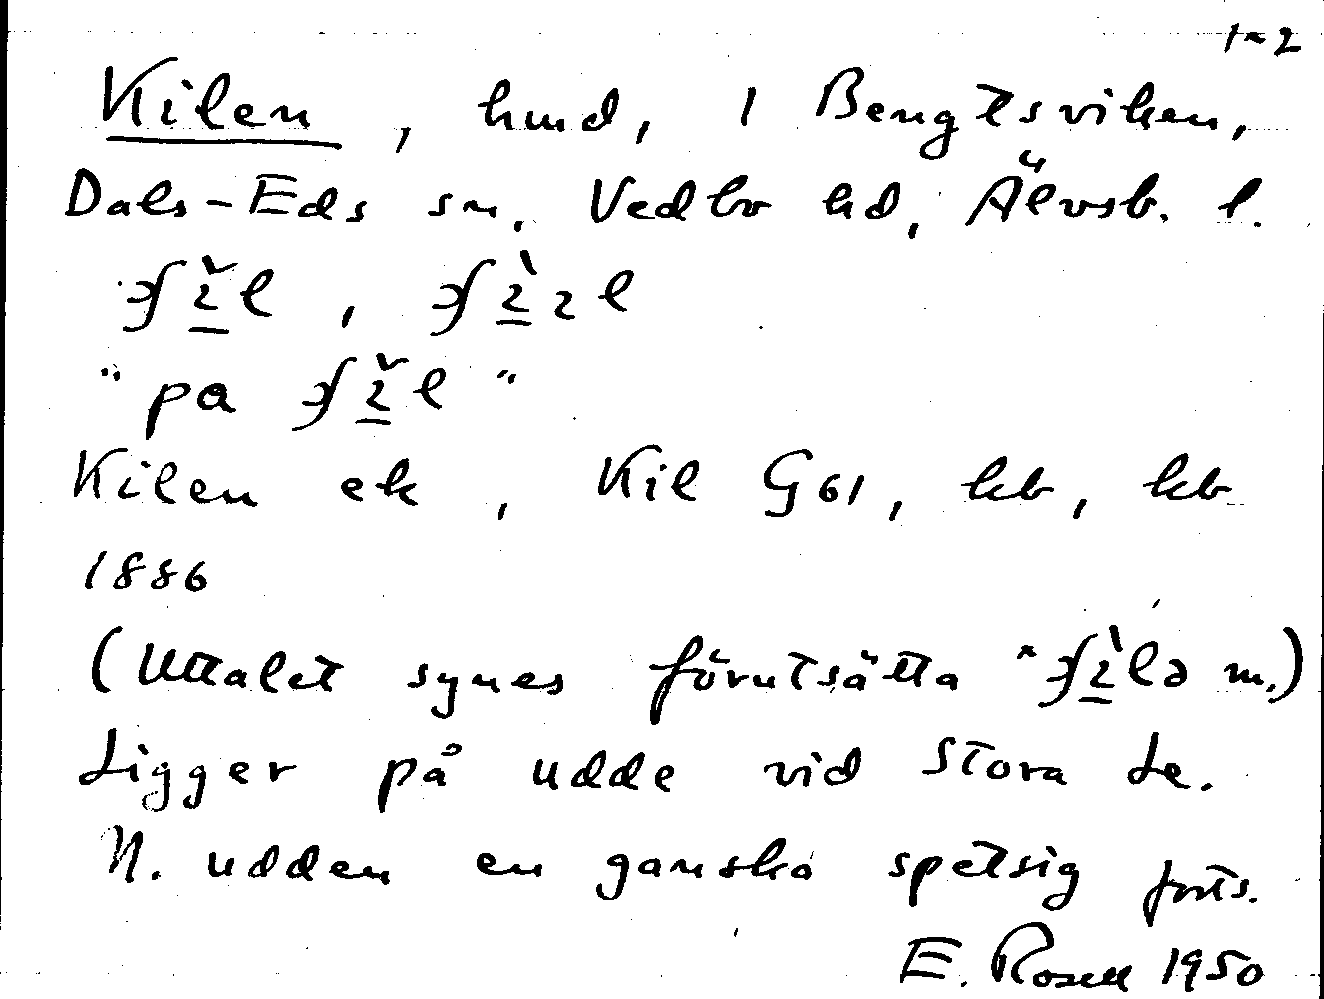 1-2
Kilen, hmd, 1 Bengtsviken,
Dals-Eds sn, Vedbo hd, Älvsb. l.
"pa
Kilen ek, Kil G61, kb, kb
1886
(Uttalet synes förutsätta m.)
Ligger på udde vid Stora Le.
N. udden en ganska spetsig forts.
E. Rosell 1950